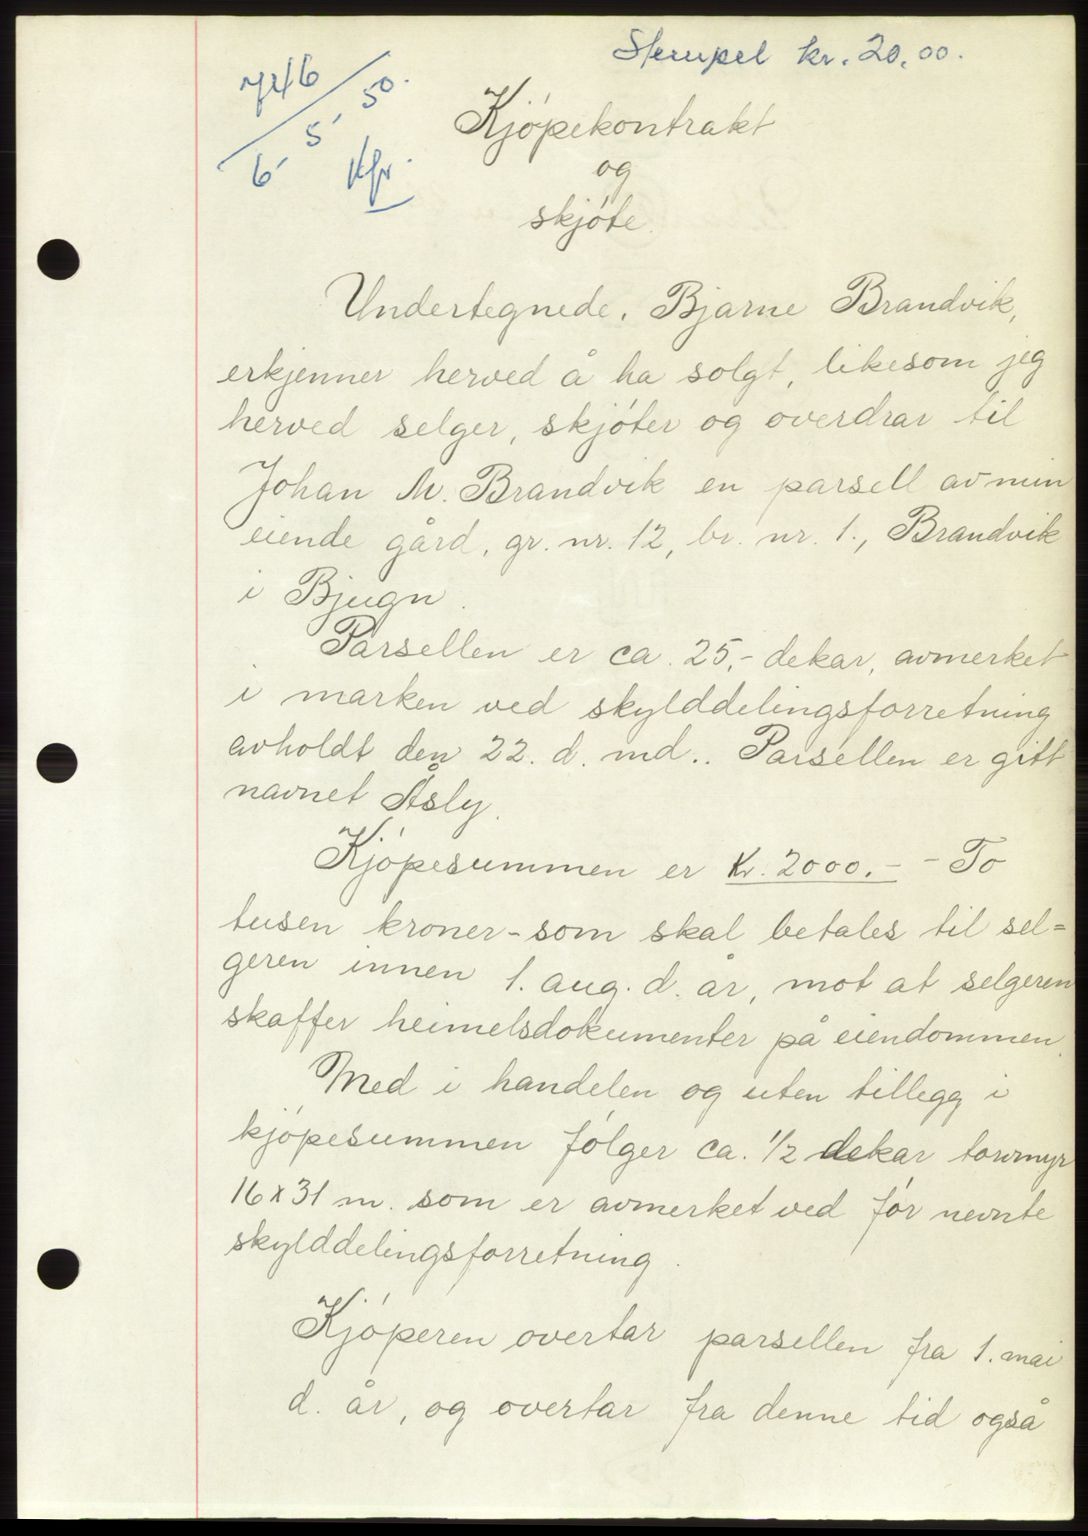 Stempel kr. 20,00.
746
6/5 50.
Kjöpekontrakt
og
skjöte.
Undertegnede, Bjarne Brandvik,
erkjenner herved å ha solgt, likesom jeg
herved selger, skjöter og overdrar til
Johan M. Brandvik en parsell av min
eiende gård, gr. nr. 12, br. nr. 1., Brandvik
i Bjugn.
Parsellen er ca. 25,- dekar, avmerket
i marken ved skylddelingsforretning
avholdt den 22. d. md.. Parsellen er gitt
navnet Åsly.
Kjöpesummen er Kr. 2000.- - To
tusen kroner - som skal betales til sel=
geren innen 1. aug. d. år, mot at selgeren
skaffer heimelsdokumenter på eiendommen.
Med i handelen og uten tillegg i
kjöpesummen fölger ca. 1/2 dekar torvmyr
16 x 31 m. som er avmerket ved för nevnte
skylddelingsforretning.
Kjöperen overtar parsellen fra 1. mai
d. år, og overtar fra denne tid også